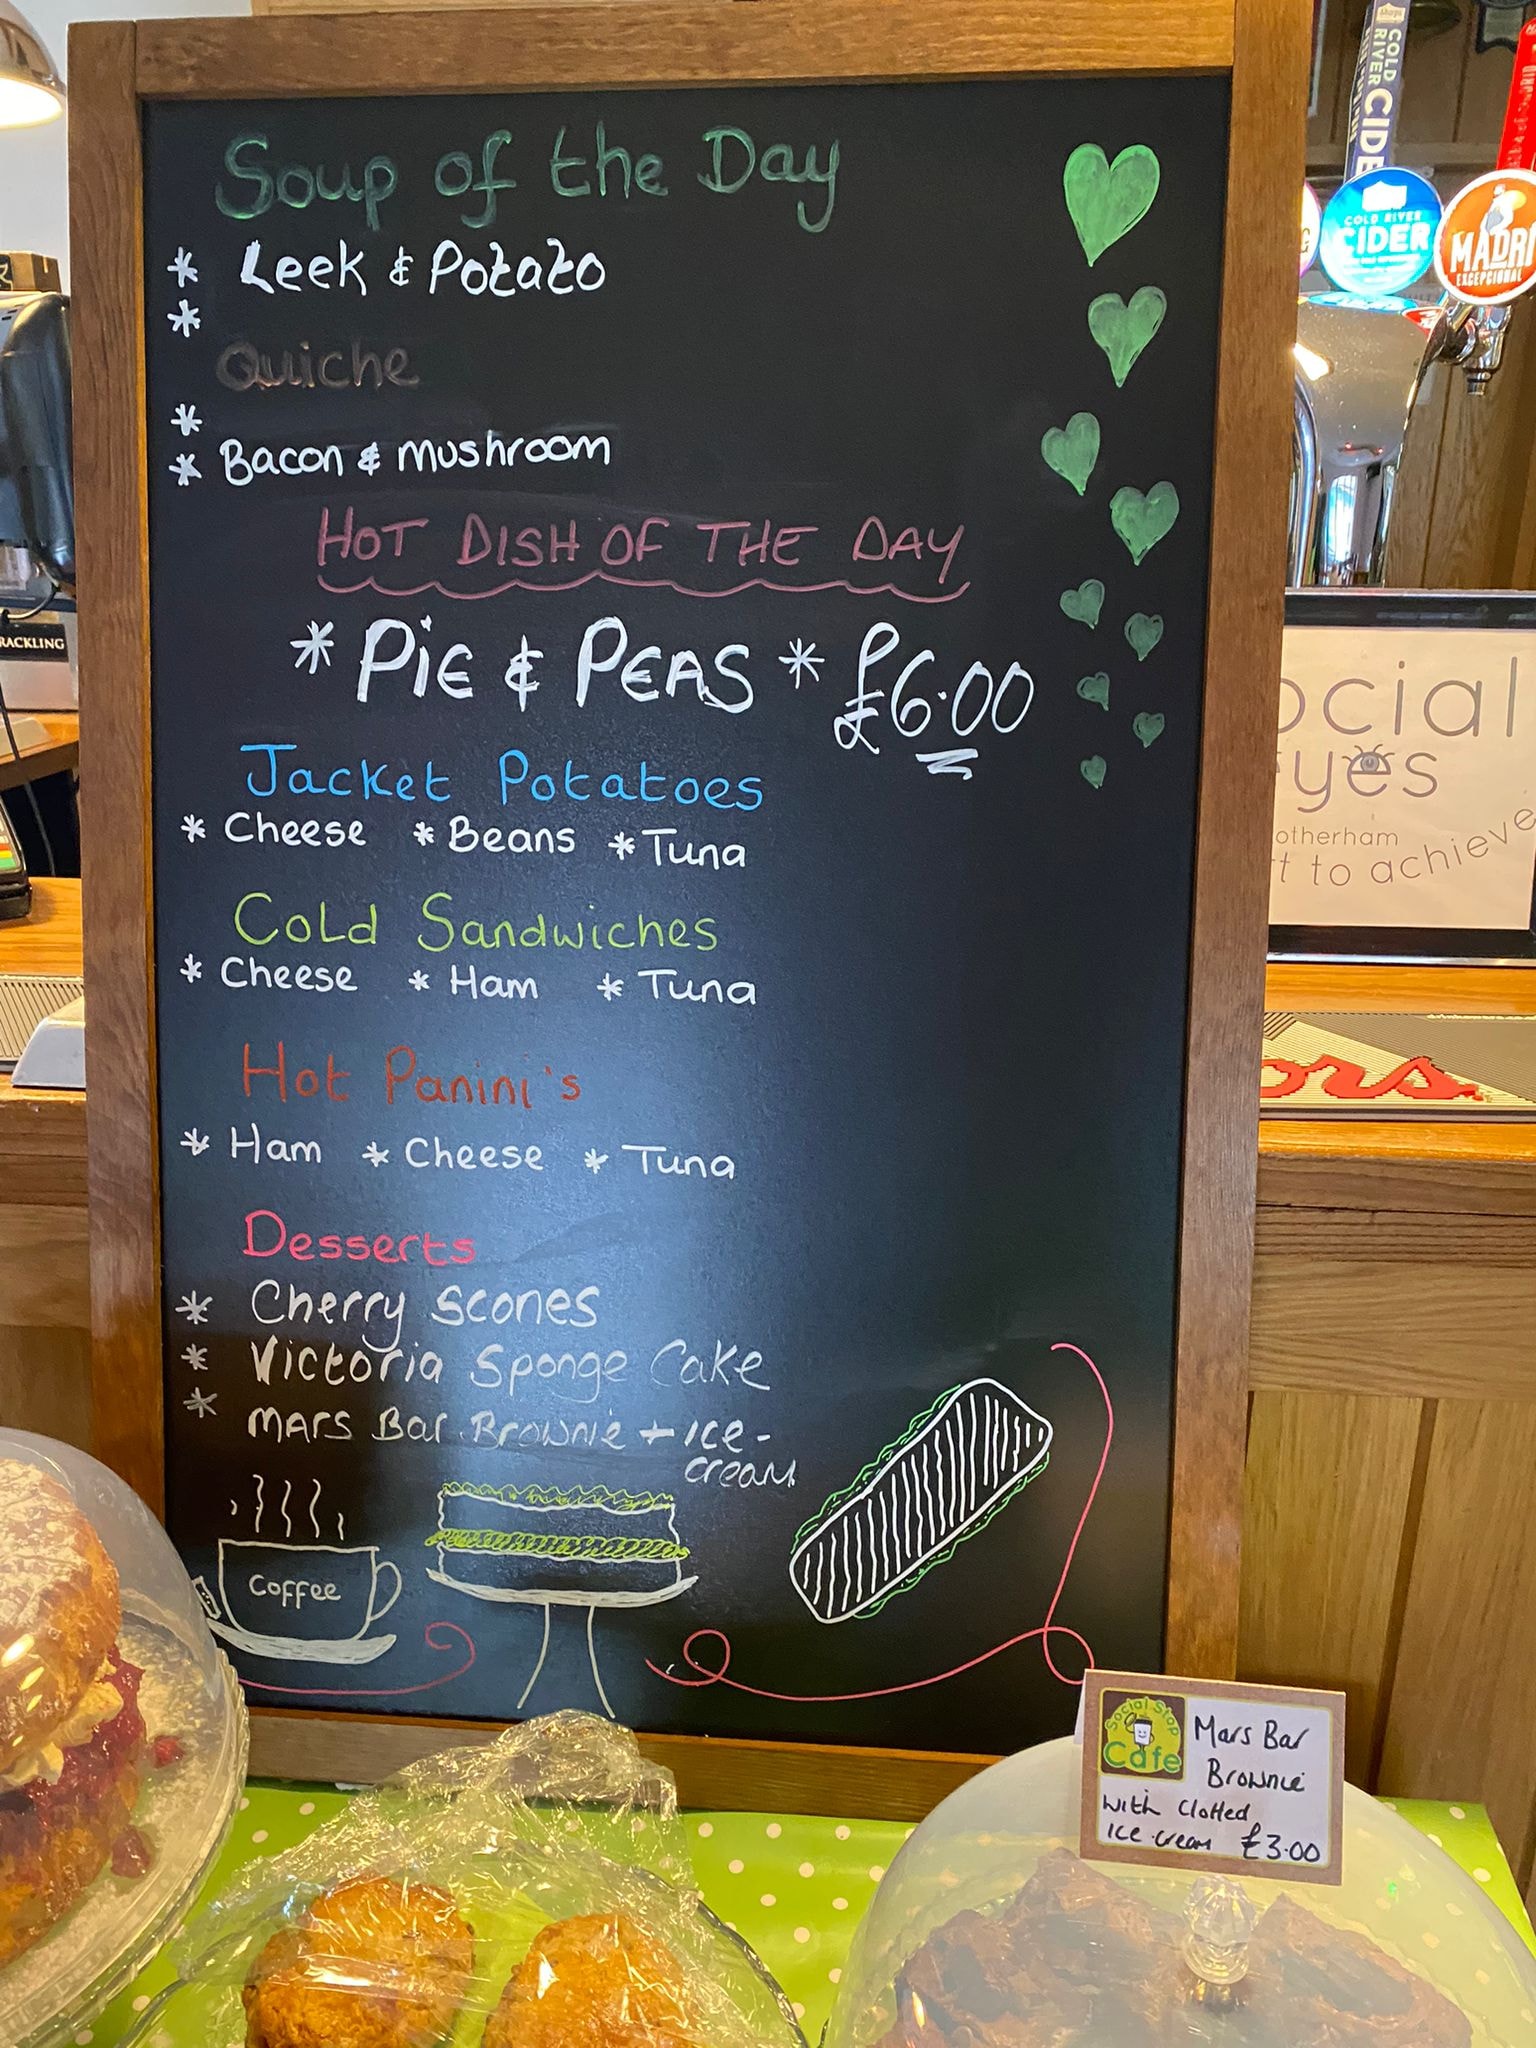 Soup of the Day
* Leek & Potato
*
Quiche
*
* Bacon & mushroom
HOT DISH OF THE DAY
* PiE & PEAS * £6.00
Jacket Potatoes
* Cheese * Beans * Tuna
Cold Sandwiches
* Cheese * Ham * Tuna
Hot Panini's
* Ham * Cheese * Tuna
Desserts
* Cherry Scones
* Victoria Sponge Cake
* MARS Bar Brownie + ice-
cream
Coffee
Social Stop
Cafe
Mars Bar
Brownie
with Clotted
ice-cream £3.00
COLD RIVER CIDE
COLD RIVER
CIDER
MADRI
EXCEPCIONAL
RACKLING
ocial
eyes
otherham
rt to achieve
ors.